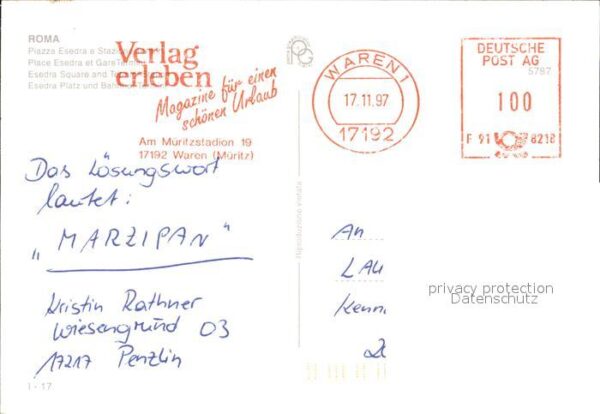 ROMA
Piazza Esedra e Stazi
Place Esedra et Gare Termini
Esedra Square and T
Esedra Platz und Bah
Verlag
erleben
Magazine für einen
schönen Urlaub
Am Müritzstadion 19
17192 Waren (Müritz)
WAREN 1
17.11.97
17192
DEUTSCHE
POST AG
5787
100
F 91 8218
Das Lösungswort
lautet:
"MARZIPAN"
Kristin Rathner
Wiesengrund 03
17217 Penzlin
I - 17
Riproduzione vietata
An
LAU
Kenn
privacy protection
Datenschutz